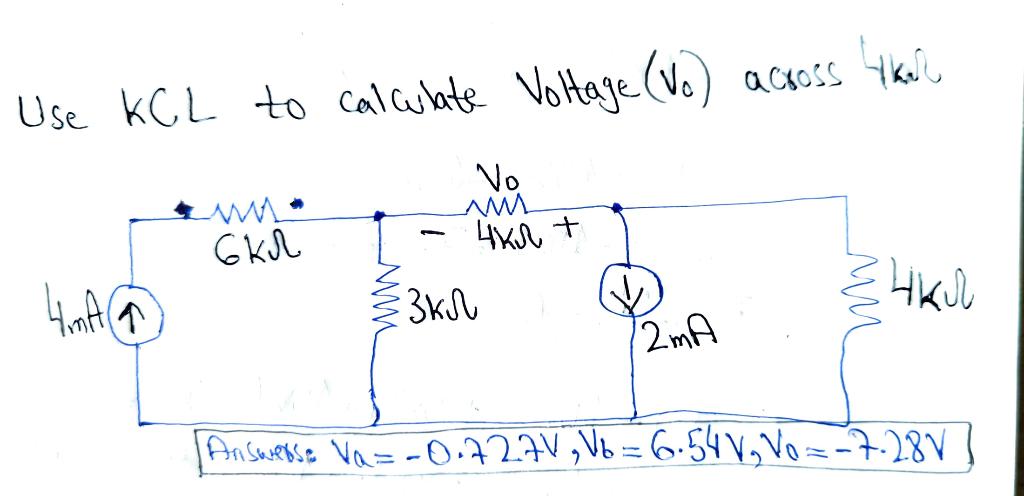 Use KCL to calculate Voltage (Vo) across 4kΩ
Vo
6kΩ
- 4kΩ +
4mA
3kΩ
2mA
4kΩ
Answerss Va = -0.727V, Vb = 6.54V, Vo = -7.28V